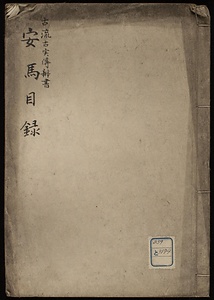 古流古実傳科書
安馬目録